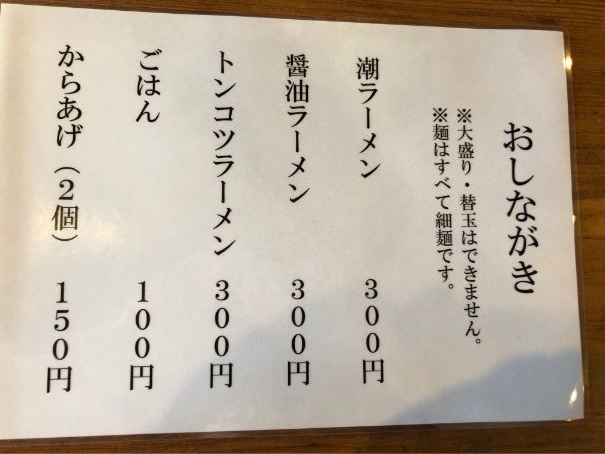 おしながき
※大盛り・替玉はできません。
※麺はすべて細麺です。
潮ラーメン 300円
醤油ラーメン 300円
トンコツラーメン 300円
ごはん 100円
からあげ（2個） 150円